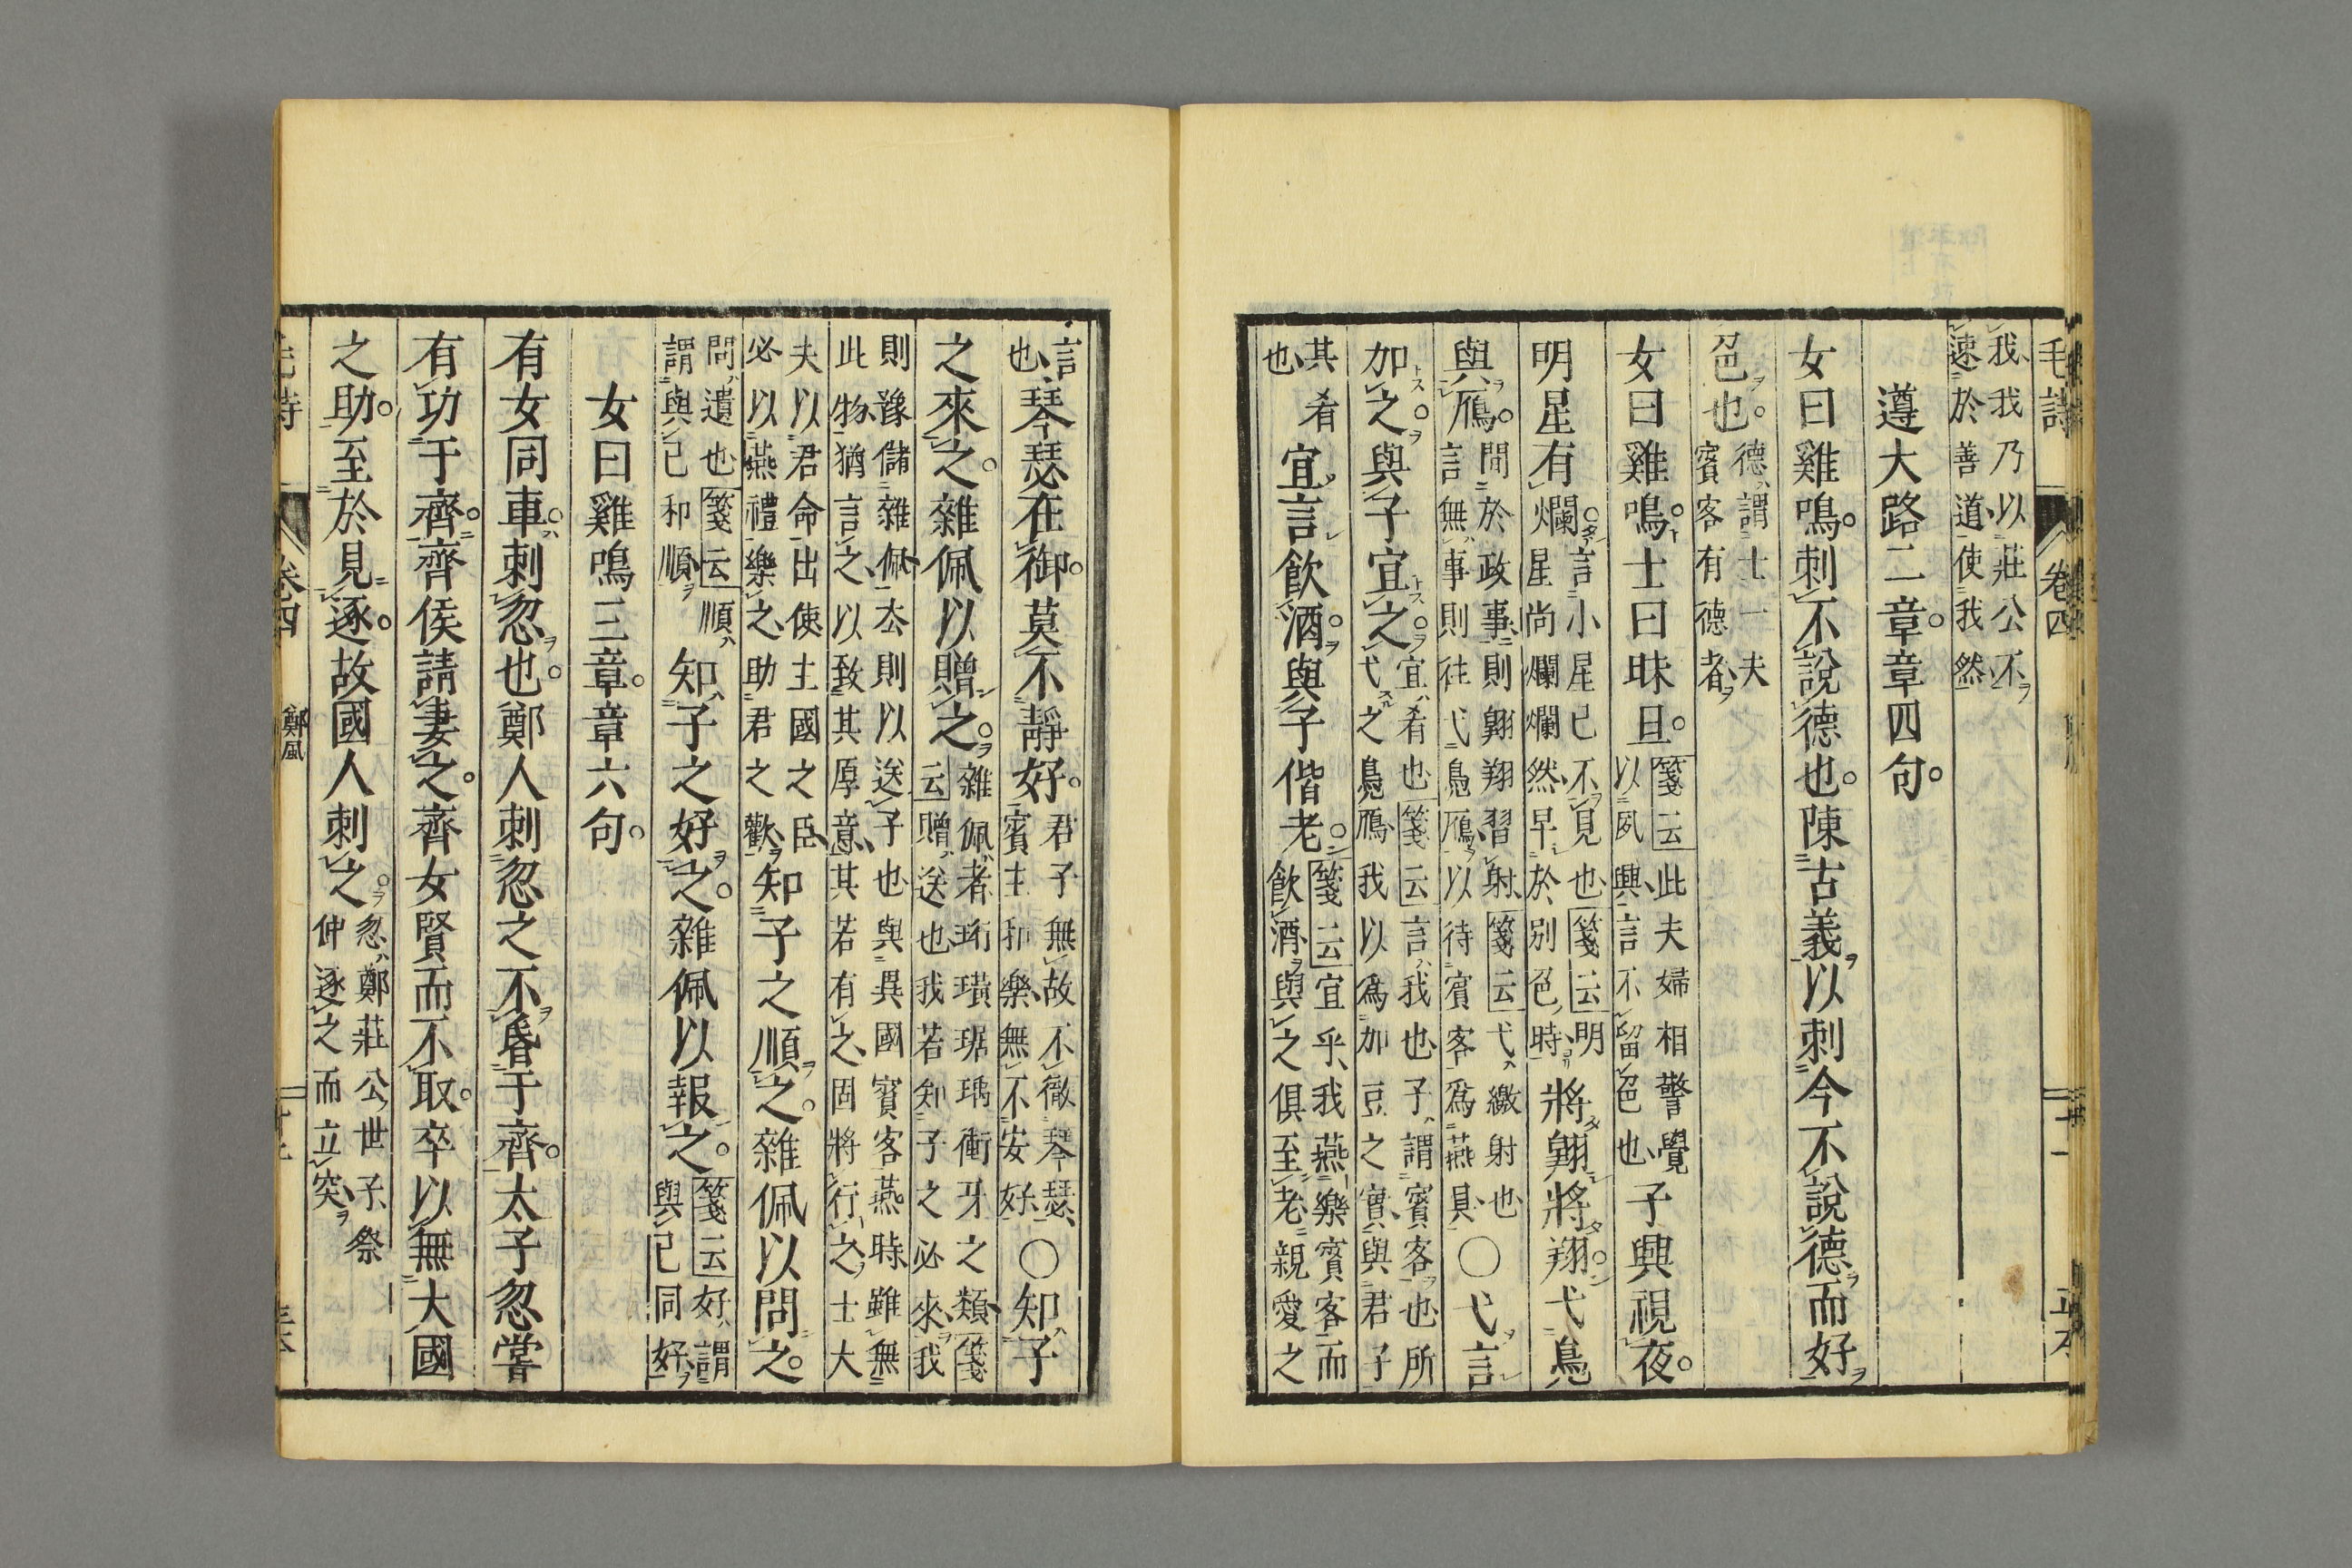 毛詩 卷四
我我乃以莊公不
速於善道使我然
遵大路二章。章四句。
女曰雞鳴。刺不說德也。陳古義以刺今不說德而好
色也。
德謂士一夫
賓客有德者
女曰雞鳴。士曰昧旦。
箋云此夫婦相警覺
以夙興言不留色也
子興視夜。
明星有爛。
言小星已不見也箋云明
星尚爛爛然早於別色時
將翺將翔。弋鳧
與鴈。
閒於政事則翺翔習射箋云弋繳射也
言無事則往弋鳧鴈以待賓客爲燕具
○弋言
加之。與子宜之。
宜肴也箋云言我也子謂賓客也所
弋之鳧鴈我以爲加豆之實與君子
其肴
也
宜言飲酒。與子偕老。
箋云宜乎我燕樂賓客而
飲酒與之俱至老親愛之
言
也
琴瑟在御。莫不靜好。
君子無故不徹琴瑟
賓主和樂無不安好
○知子
之來之。雜佩以贈之。
雜佩者珩璜琚瑀衝牙之類箋
云贈送也我若知子之必來我
則豫儲雜佩去則以送子也與異國賓客燕時雖無
此物猶言之以致其厚意其若有之固將行之士大
夫以君命出使主國之臣
必以燕禮樂之助君之歡
知子之順之。雜佩以問之。
問遺也箋云順
謂與己和順
知子之好之。雜佩以報之。
箋云好謂
與己同好
女曰雞鳴三章。章六句。
有女同車。刺忽也。鄭人刺忽之不昏于齊。太子忽嘗
有功于齊。齊侯請妻之。齊女賢而不取。卒以無大國
之助。至於見逐。故國人刺之。
忽鄭莊公世子祭
仲逐之而立突
卷四 鄭風